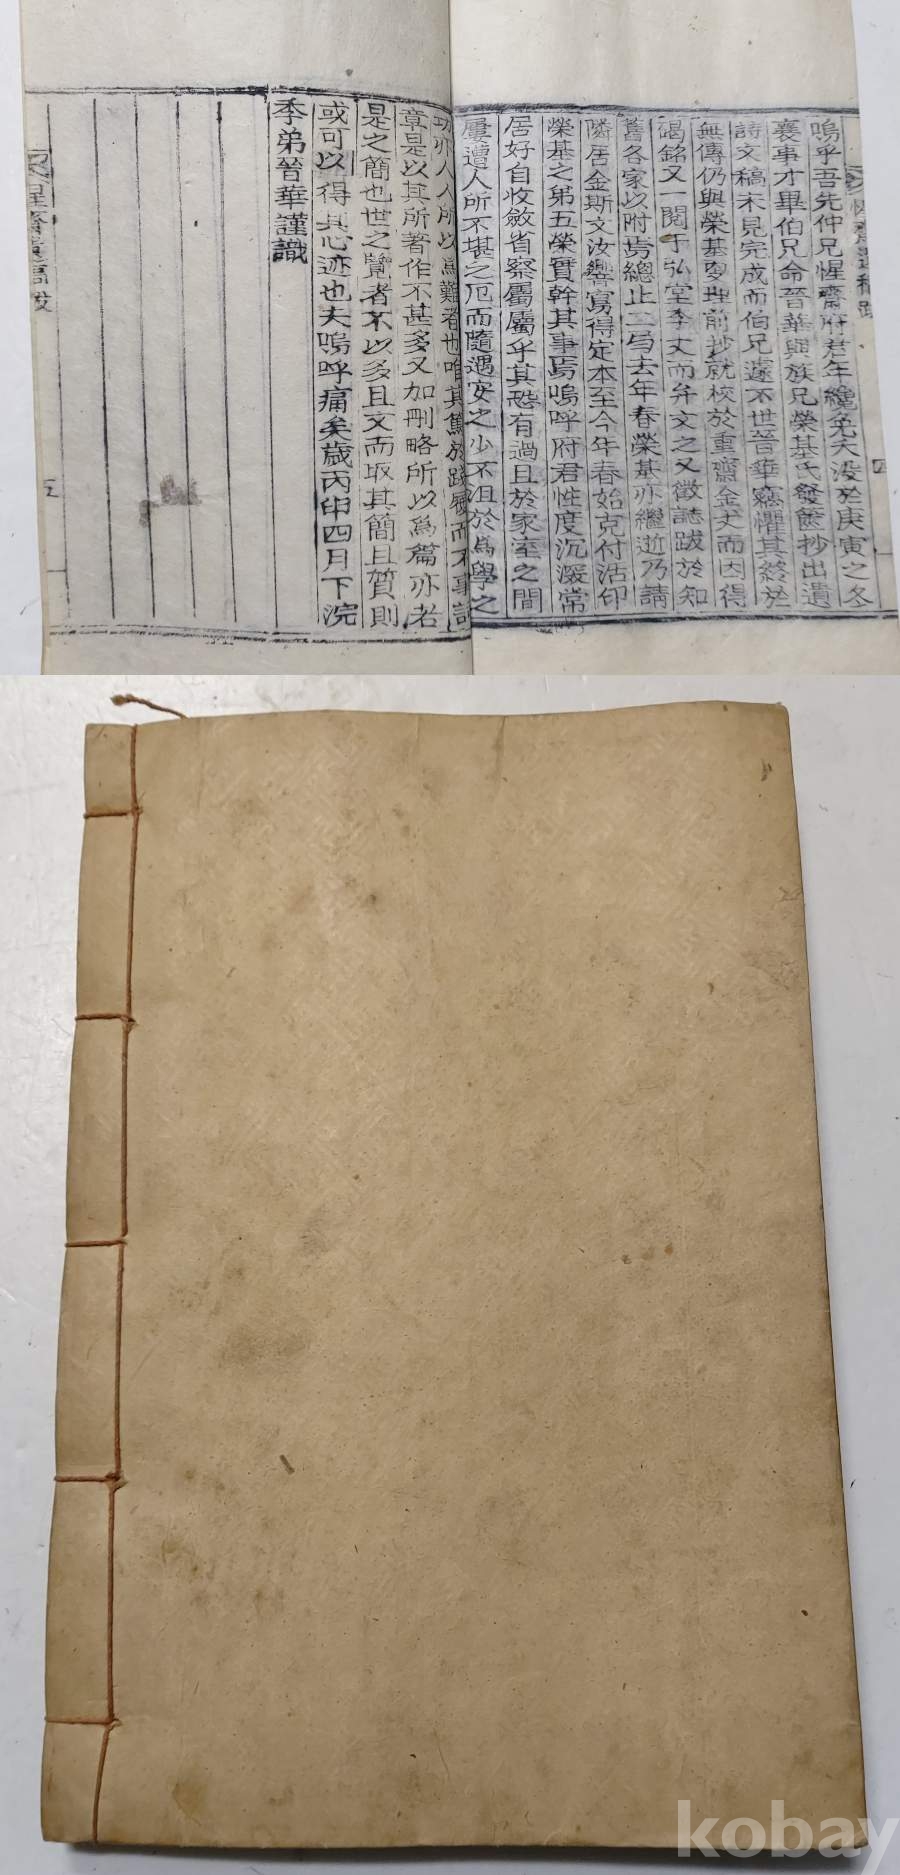 嗚乎吾先仲兄惺齋府君年纔免夭沒於庚寅之冬
襄事才畢伯兄命晉華與族兄榮基氏發篋抄出遺
詩文稿未見完成而伯兄遽不世晉華竊懼其終於
無傳仍與榮基理前抄就校於重齋金丈而因得
碣銘又一閱于弘堂李丈而弁文之又徵誌跋於知
舊各家以附焉總止二局去年春榮基亦繼逝乃請
隣居金斯文汝響寫得定本至今年春始克付活印
榮基之弟五榮實幹其事焉嗚呼府君性度沉深常
居好自收斂省察屬屬乎其恐有過且於家室之間
屢遭人所不堪之厄而隨遇安之少不沮於爲學之
功亦人人所以爲難者也唯其篤於踐履而不事
章是以其所著作不甚多又加刪略所以爲篇亦若
是之簡也世之覽者不以多且文而取其簡且質則
或可以得其心迹也夫嗚呼痛矣歲丙申四月下浣
季弟晉華謹識
惺齋遺稿跋
四
惺齋遺稿跋
五
kobay